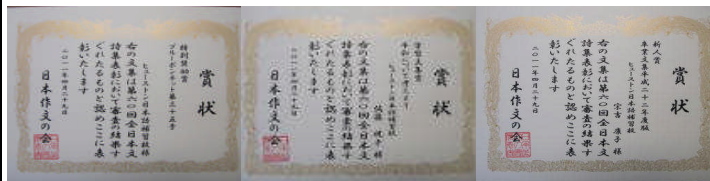 賞状
特別奨励賞
ブルーボンネット第三十五号
ヒューストン日本語補習校様
右の文集は第六〇回全日本文
詩集表彰において審査の結果す
ぐれたるものと認めここに表
彰いたします
二〇一一年四月二十九日
日本作文の会
賞状
右の文集は第六〇回全日本文
詩集表彰において審査の結果す
ぐれたるものと認めここに表
彰いたします
二〇一一年四月二十九日
日本作文の会
賞状
新人賞
卒業文集平成二十二年度版
ヒューストン日本語補習校
右の文集は第六〇回全日本文
詩集表彰において審査の結果す
ぐれたるものと認めここに表
彰いたします
二〇一一年四月二十九日
日本作文の会